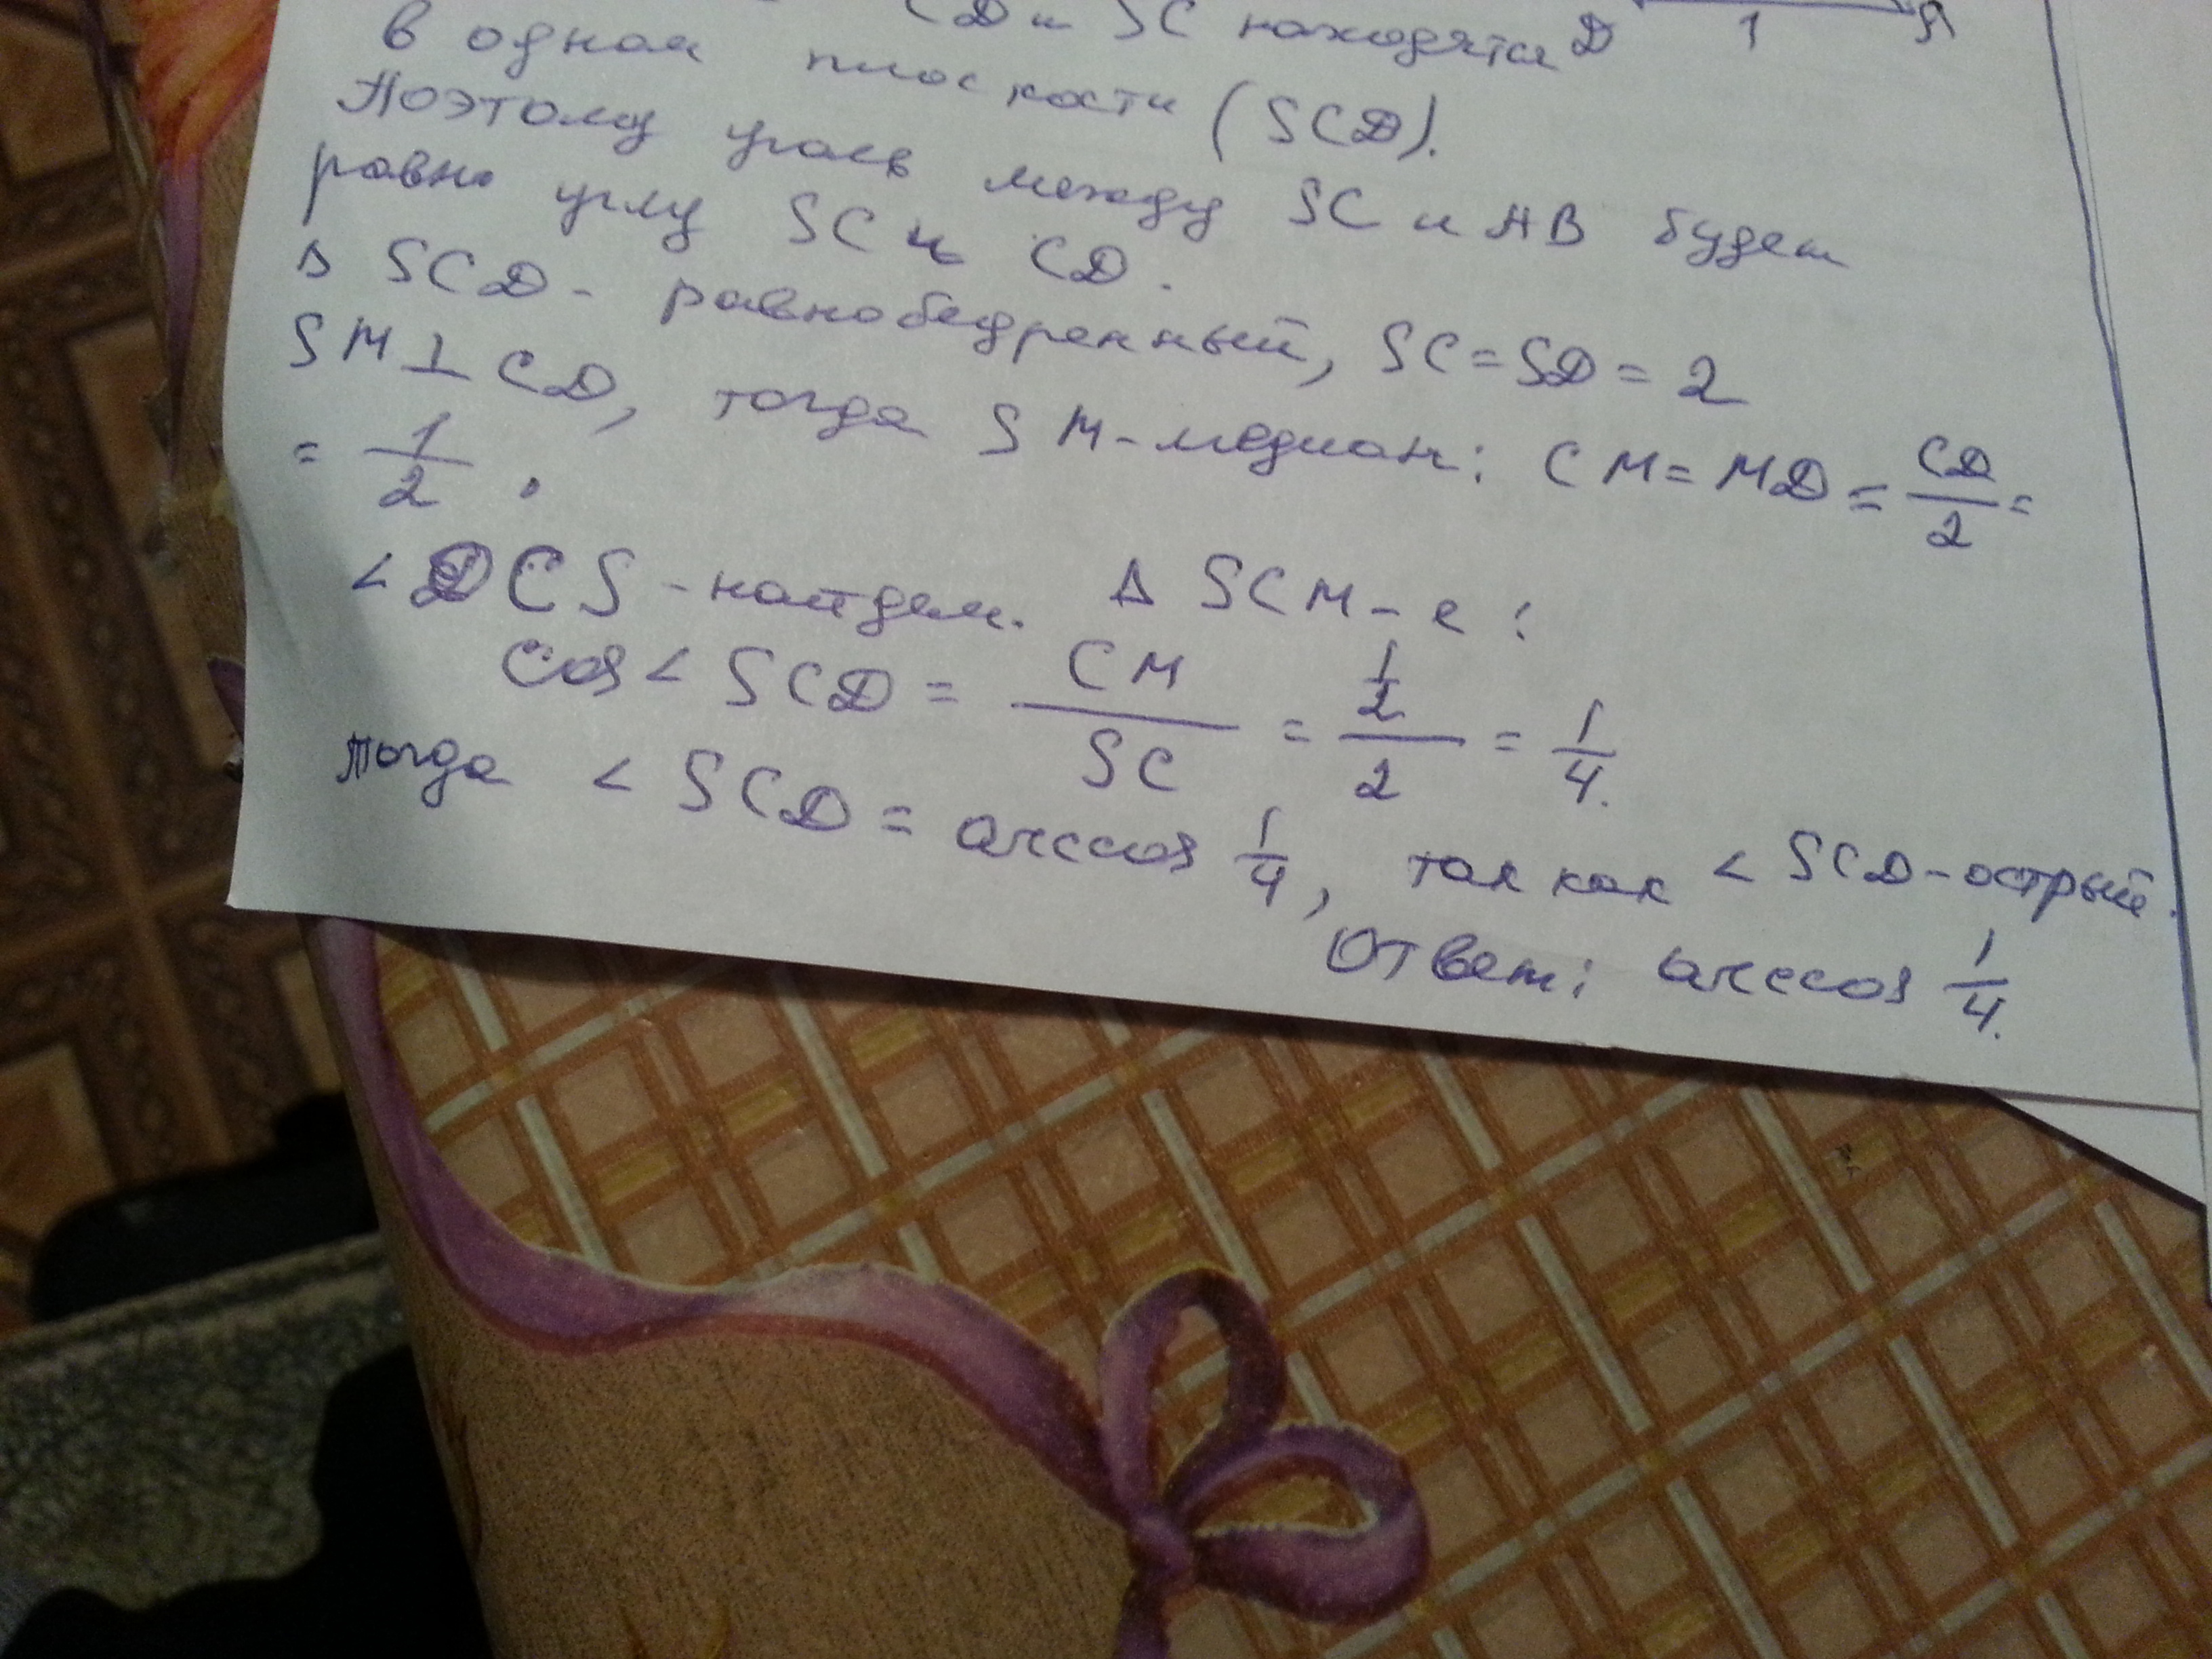 CD и SC находятся D 1 A
в одной плоскости (SCD).
Поэтому угол между SC и AB будет
равно углу SC и CD.
Δ SCD - равнобедренный, SC = SD = 2
SM ⊥ CD, тогда SM - медиан: CM = MD = CD/2 =
= 1/2.
< DCS - найдем. Δ SCM - е:
cos < SCD = CM/SC = 1/2/2 = 1/4.
тогда < SCD = arccos 1/4, так как < SCD - острый.
Ответ: arccos 1/4.